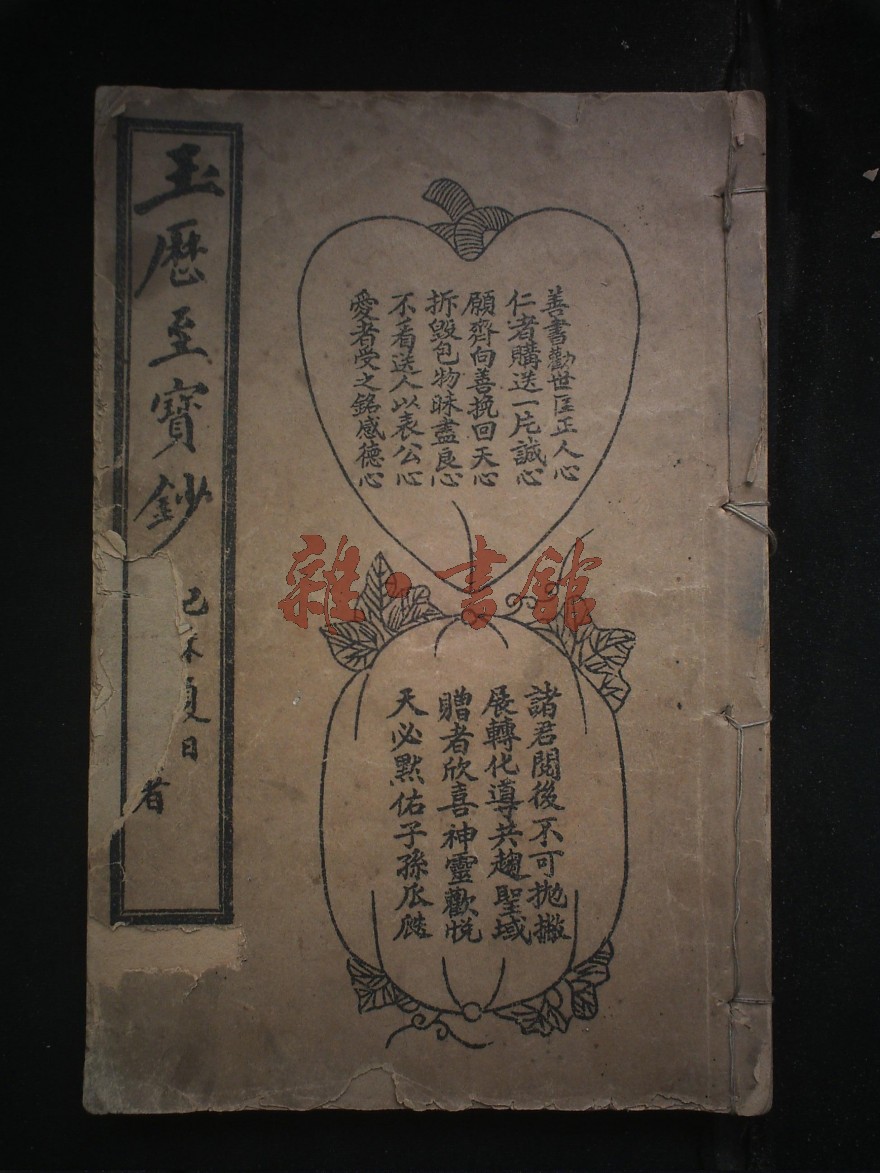 玉厯至寶鈔
己
夏日
者
善書勸世匡正人心
仁者購送一片誠心
願齊向善挽回天心
拆毀包物昧盡良心
不看送人以表公心
愛者受之銘感德心
諸君閱後不可拋撇
展轉化導共趨聖域
贈者欣喜神靈歡悅
天必默佑子孫瓜瓞
雜·書館